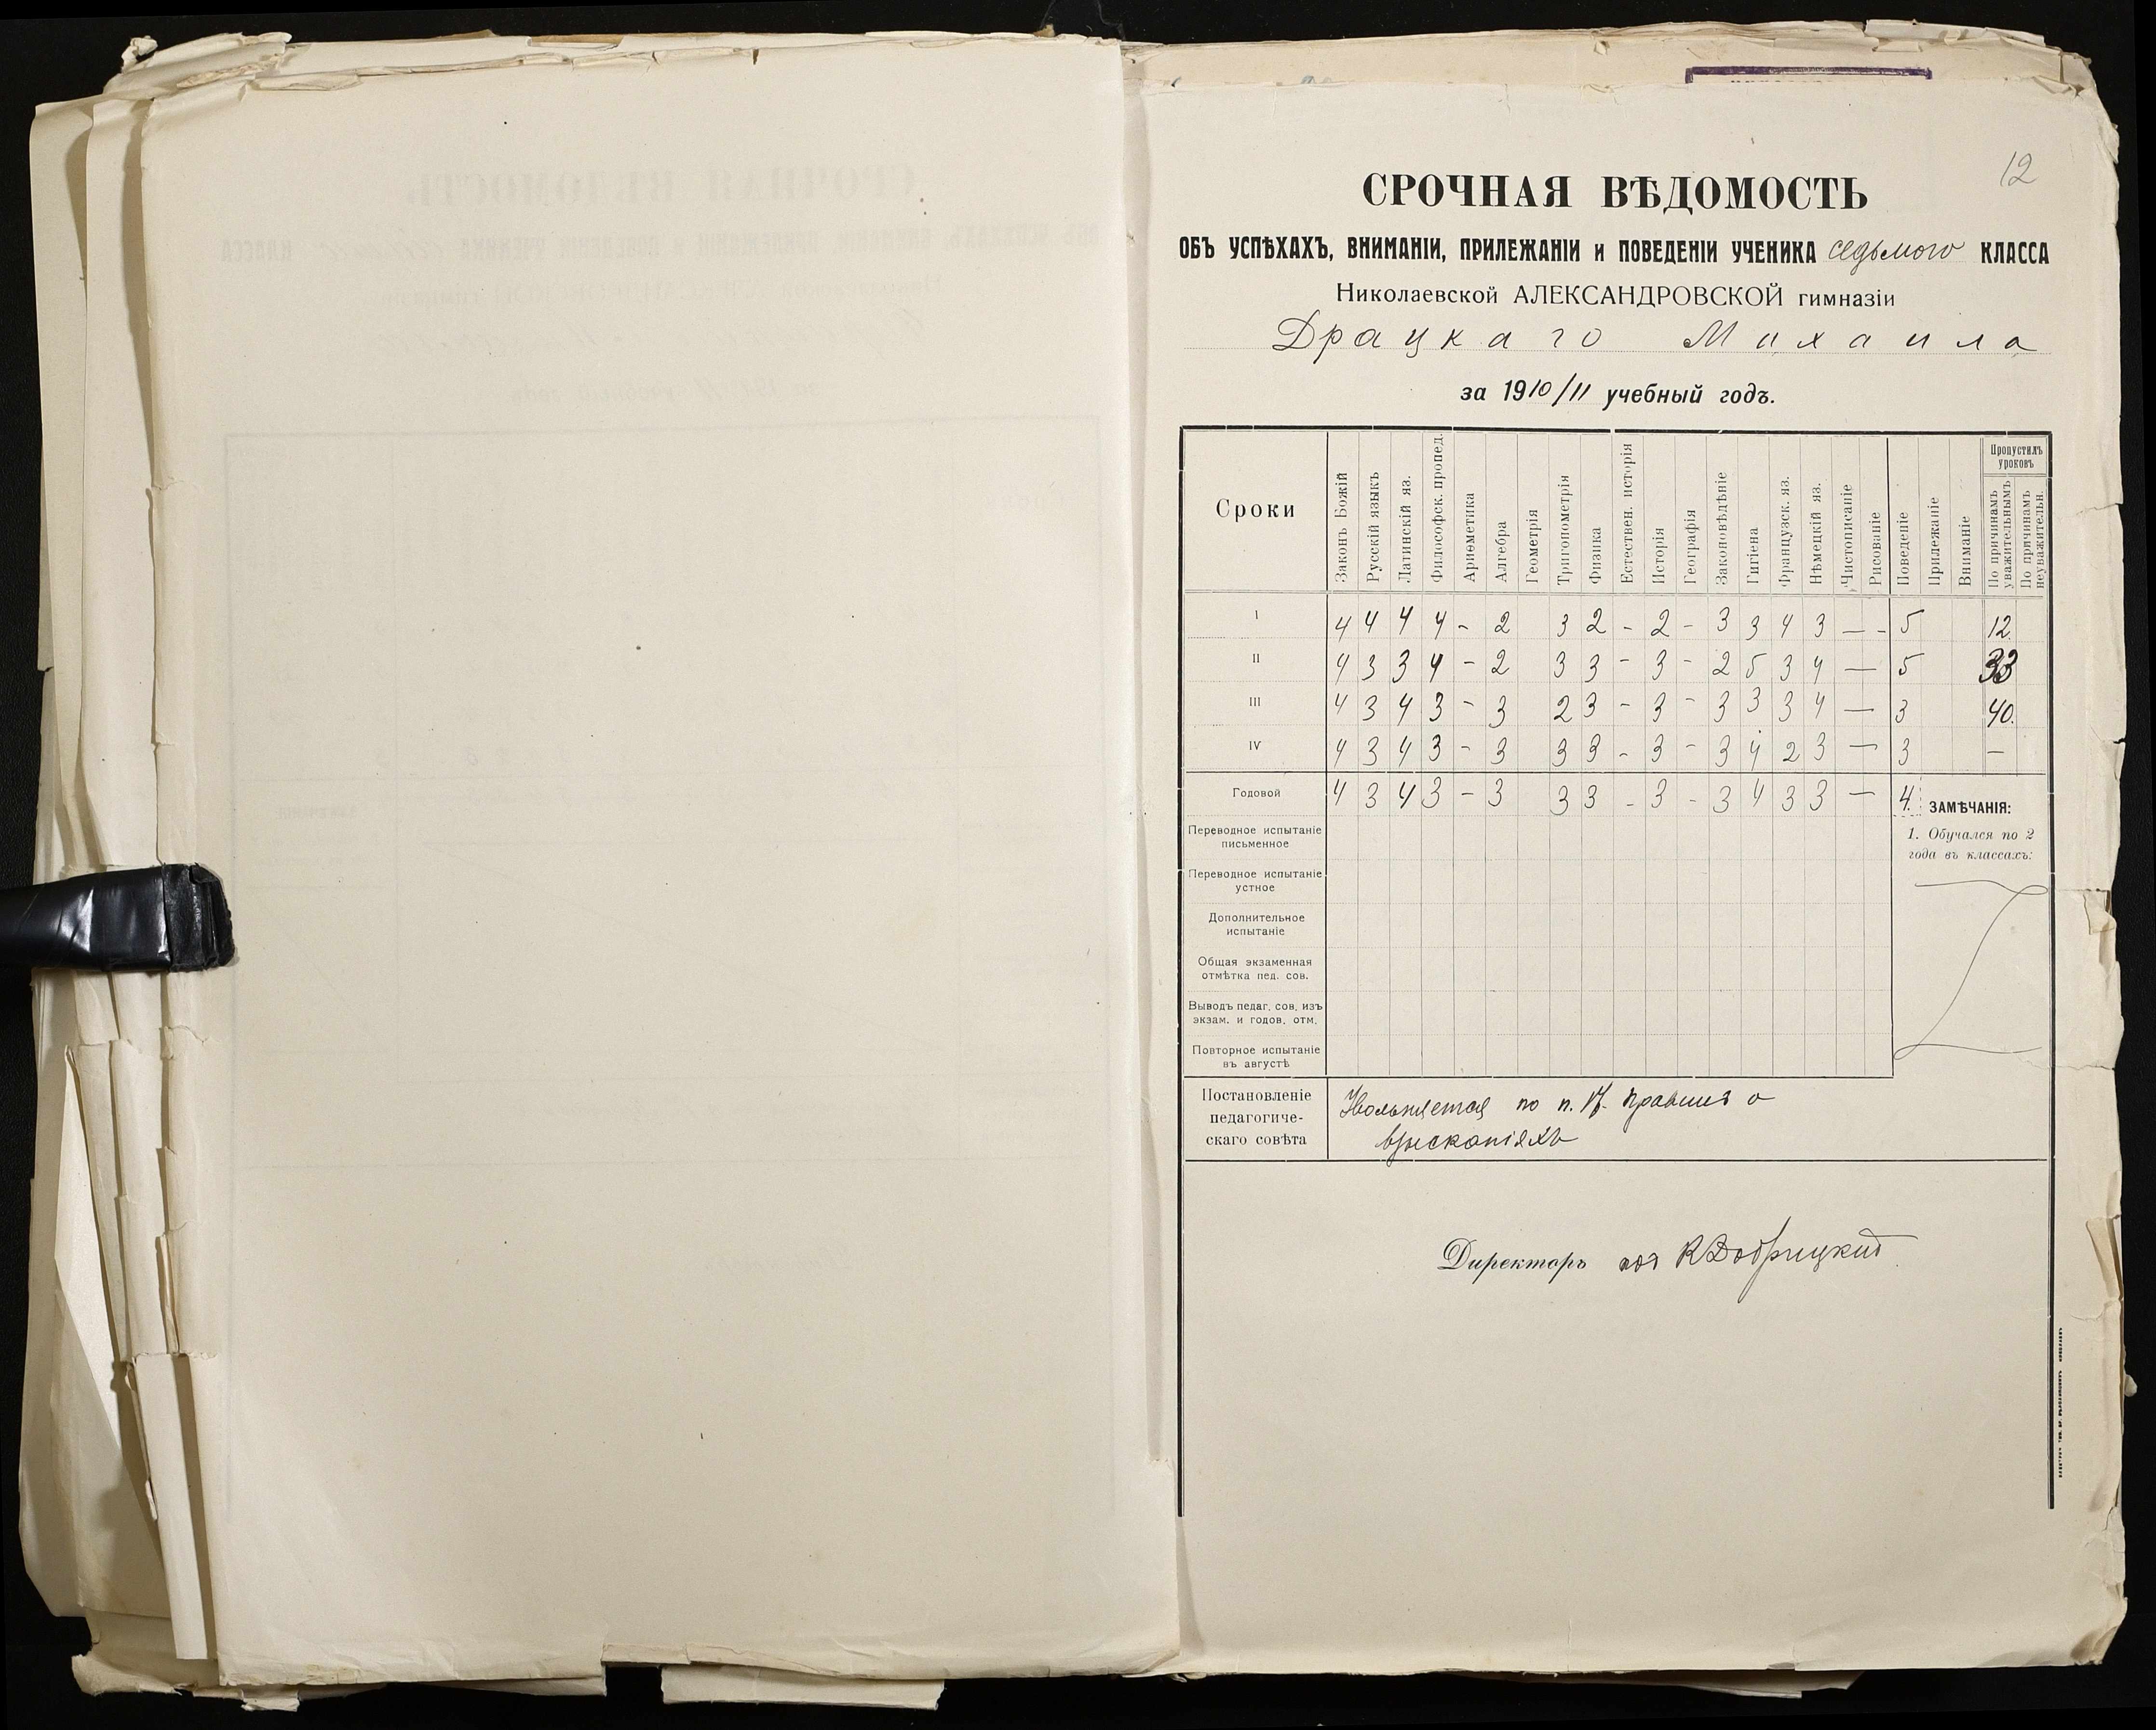 12
СРОЧНАЯ ВѢДОМОСТЬ
ОБЪ УСПѢХАХЪ, ВНИМАНІИ, ПРИЛЕЖАНІИ и ПОВЕДЕНІИ УЧЕНИКА седьмого КЛАССА
Николаевской АЛЕКСАНДРОВСКОЙ гимназіи
Драцкаго Михаила
за 1910/11 учебный годъ.
Сроки
Законъ Божій
Русскій языкъ
Латинскій яз.
Философск. пропед.
Ариѳметика
Алгебра
Геометрія
Тригонометрія
Физика
Естествен. исторія
Исторія
Географія
Законовѣдѣніе
Гигіена
Французск. яз.
Нѣмецкій яз.
Чистописаніе
Рисованіе
Поведеніе
Прилежаніе
Вниманіе
Пропустилъ
уроковъ
По причинамъ
уважительнымъ
По причинамъ
неуважительн.
I 4 4 4 4 - 2 3 2 - 2 - 3 3 4 3 — - 5 12.
II 4 3 3 4 - 2 3 3 - 3 - 2 5 3 4 — 5 33
III 4 3 4 3 - 3 2 3 - 3 - 3 3 3 4 — 3 40.
IV 4 3 4 3 - 3 3 3 - 3 - 3 4 2 3 — 3 —
Годовой 4 3 4 3 - 3 3 3 - 3 - 3 4 3 3 — 4.
ЗАМѢЧАНІЯ:
1. Обучался по 2
года въ классахъ:
Переводное испытаніе
письменное
Переводное испытаніе
устное
Дополнительное
испытаніе
Общая экзаменная
отмѣтка пед. сов.
Выводъ педаг. сов. изъ
экзам. и годов. отм.
Повторное испытаніе
въ августѣ
Постановленіе
педагогиче-
скаго совѣта
Увольняется по п. правилъ о
взысканіяхъ
Директоръ К Добрицкий